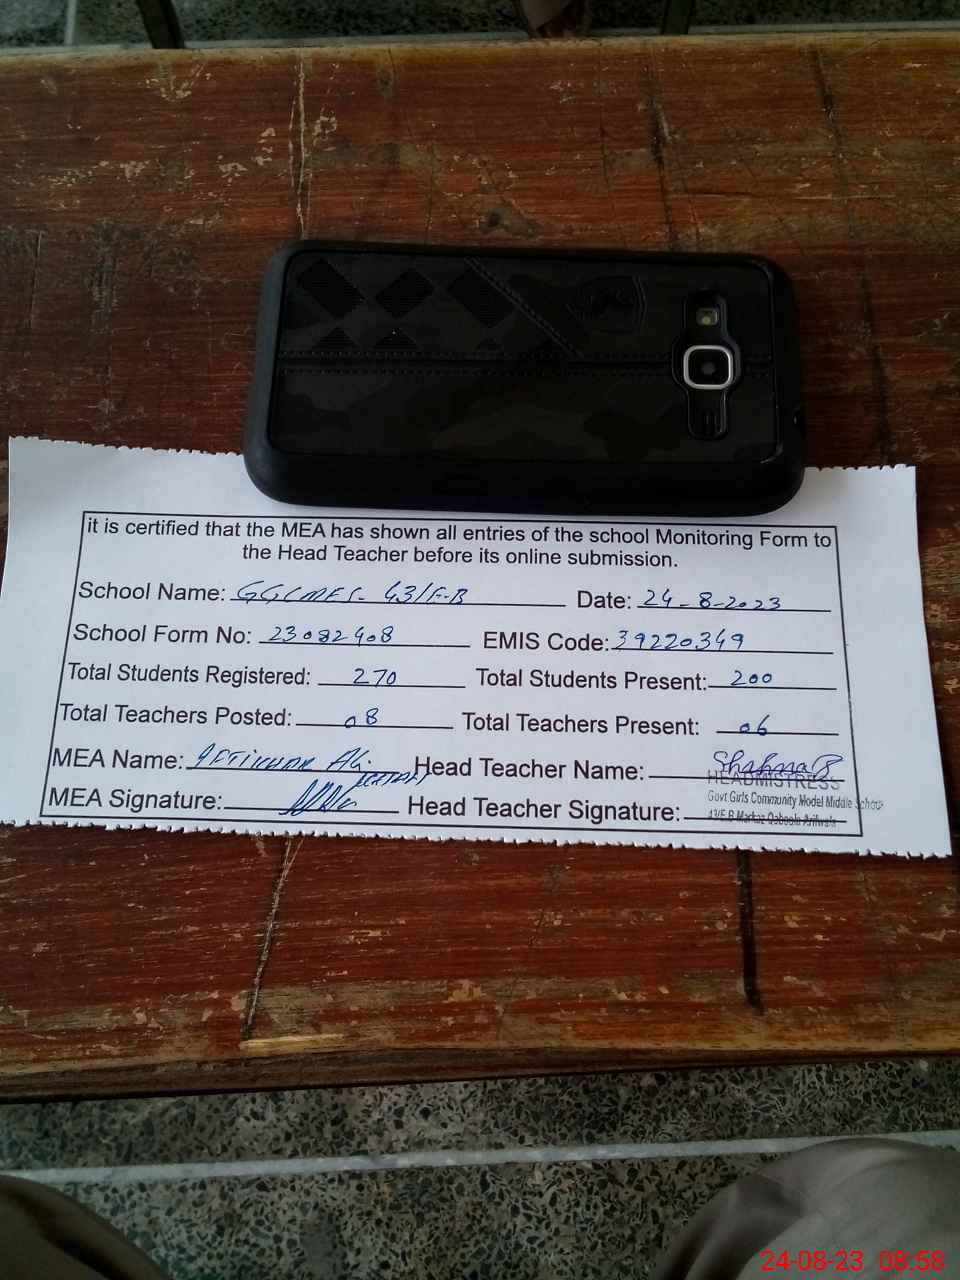 it is certified that the MEA has shown all entries of the school Monitoring Form to
the Head Teacher before its online submission.
School Name: GGCMES 43/E-B Date: 24-8-2023
School Form No: 23082408 EMIS Code: 39220349
Total Students Registered: 270 Total Students Present: 200
Total Teachers Posted: 08 Total Teachers Present: 06
MEA Name: Iftikhar Ali Head Teacher Name:
HEADMISTRESS
MEA Signature: Head Teacher Signature:
Govt Girls Community Model Middle School
43/E.B Markaz Qaboola Arifwala
24-08-23 08:58